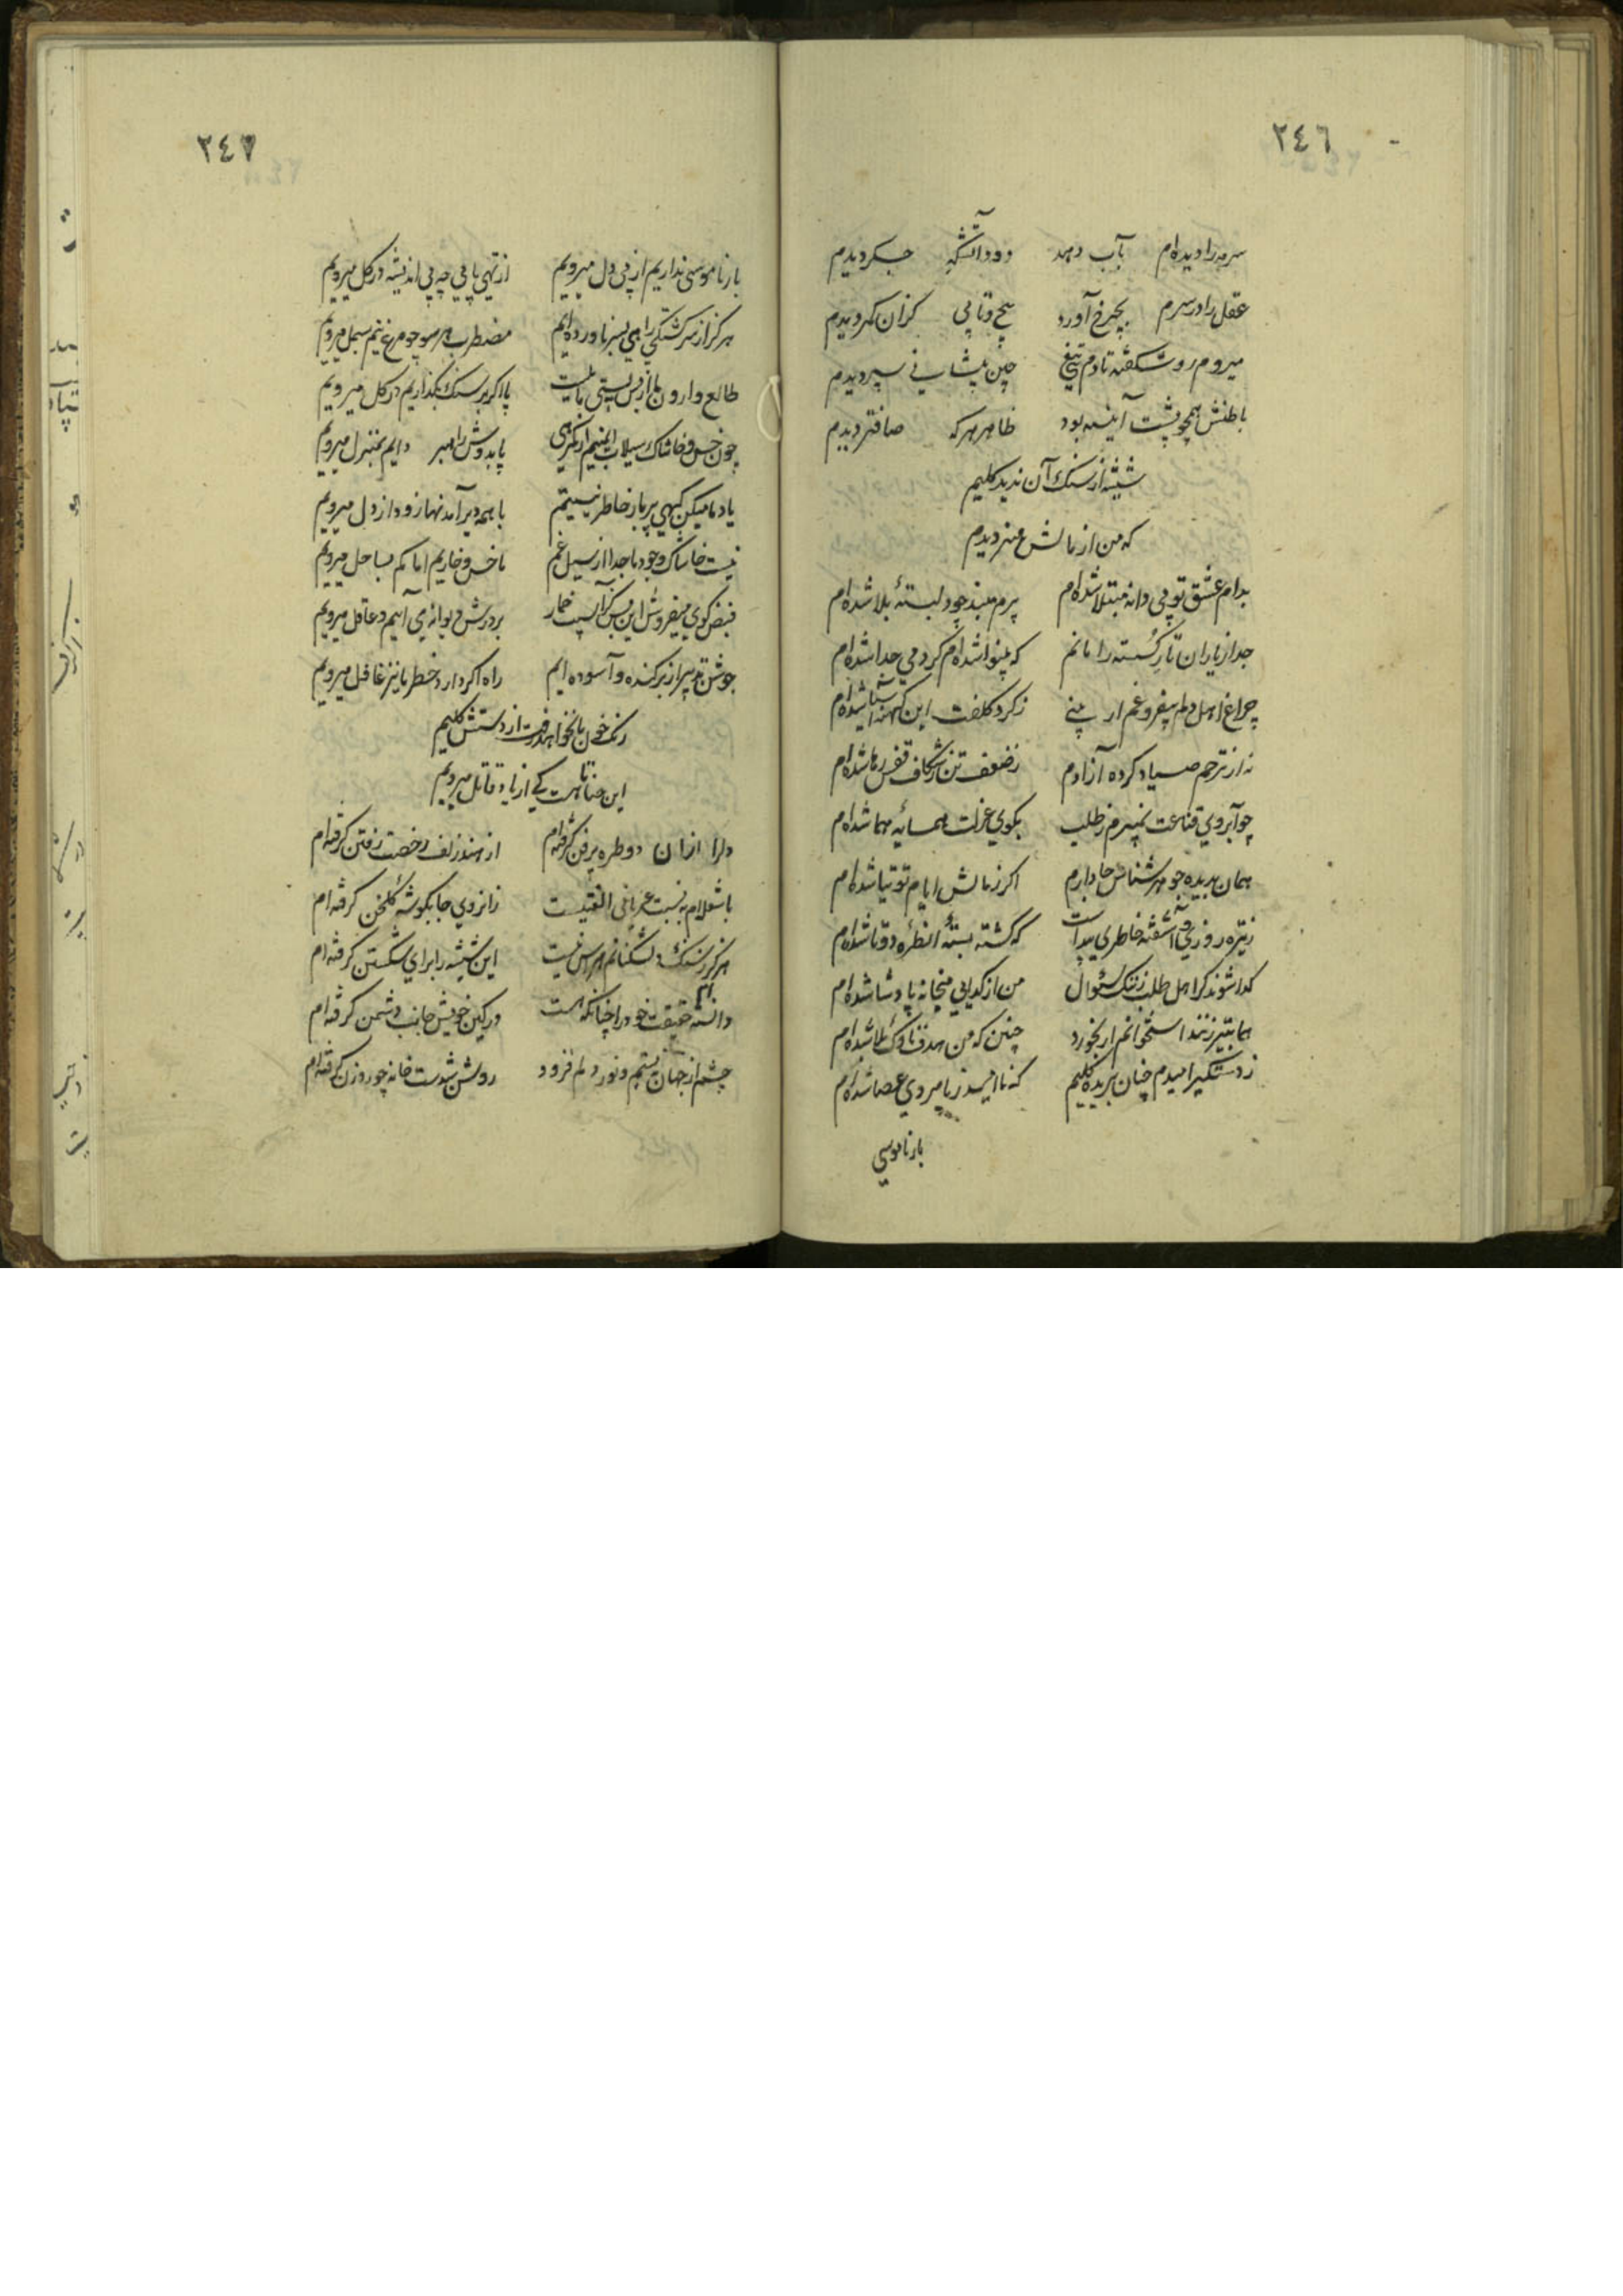 ٢٤٦
سرمه را دیده‌ام بآب دهد دود آتشگه جگر دیدم
عقل را در سرم بچرخ آورد پیچ و تابی کزان کمر دیدم
میروم رو شکفته تا دم تیغ چین پیشانی سپر دیدم
باطنش همچو پشت آینه بود ظاهر هرکه صافتر دیدم
شیشه از سنک آن ندید کلیم
که من از نالش هنر دیدم
بدام عشق تو بی دانه مبتلا شده‌ام پرم مبند چو دلبستهٔ بلا شده‌ام
جدا ز یاران تار کسسته را مانم که بینوا شده‌ام کر دمی جدا شده‌ام
چراغ اهل دلم بیفروغم ار بینی ز کرد کلفت این کهنه آسیا شده‌ام
نه از ترحم صیاد کرده آزادم ز ضعف تن ز شکاف قفس رها شده‌ام
چو آبروی قناعت نمیبرم ز طلب بکوی عزلت همسایهٔ هما شده‌ام
همان بدیدهٔ جوهر شناس جا دارم اکر ز مالش ایام توتیا شده‌ام
ز تیره روزی و آشفته خاطری پیداست که کشته بستهٔ آن طرهٔ دوتا شده‌ام
کدا شوند کر اهل طلب ز ننک سئوال من از کدایی میخانه پادشا شده‌ام
هما بتیر زنند استخوانم ار بخورد چنین که من هدف ناوک بلا شده‌ام
ز دستکیر امیدم چنان بریده کلیم که ناامید ز پامردی عصا شده‌ام
بار ناموسی
٢٤٧
بار ناموسی نداریم از پی دل میرویم از تهی پایی چه بی اندیشه در کل میرویم
هرکز از سرکشتکی راهی بسر ناورده‌ایم مضطرب هر سو چو مرغ نیم بسمل میرویم
طالع وارون ما از بس بپستی مایلست پا اکر بر سنک بکذاریم در کل میرویم
چون خس و خاشاک سیلاب ایمنیم از کمرهی پا بدوش راهبر دایم بمنزل میرویم
یاد ما میکن کهی پر بار خاطر نیستیم با همه دیر آمدنها زود از دل میرویم
نیست خاشاک وجود ما جدا از سیل غم ما خس و خاریم اما کم بساحل میرویم
فیض کوی میفروش این بس کز آسیب خمار بر درش دیوانه می آییم و عاقل میرویم
جوشن تدبیر از بر کنده و آسوده‌ایم راه اکر دارد خطر ما نیز غافل میرویم
رنک خون ما نخواهد رفت از دستش کلیم
این حنا تا هست کی از یاد قاتل میرویم
دلرا ازان دو طره پرفن کرفته‌ام از هند زلف رخصت رفتن کرفته‌ام
با شعله‌ام به نسبت عریانی الفتیست زانروی جا بکوشهٔ کلخن کرفته‌ام
هرکز ز سنک دلشکنانم هراس نیست این شیشه را برای شکستن کرفته‌ام
دانسته‌ام حقیقت خود را چنانکه هست در کین خویش جانب دشمن کرفته‌ام
چشم از جهان ببستم و نور دلم فزود روشن شدست خانه چو روزن کرفته‌ام